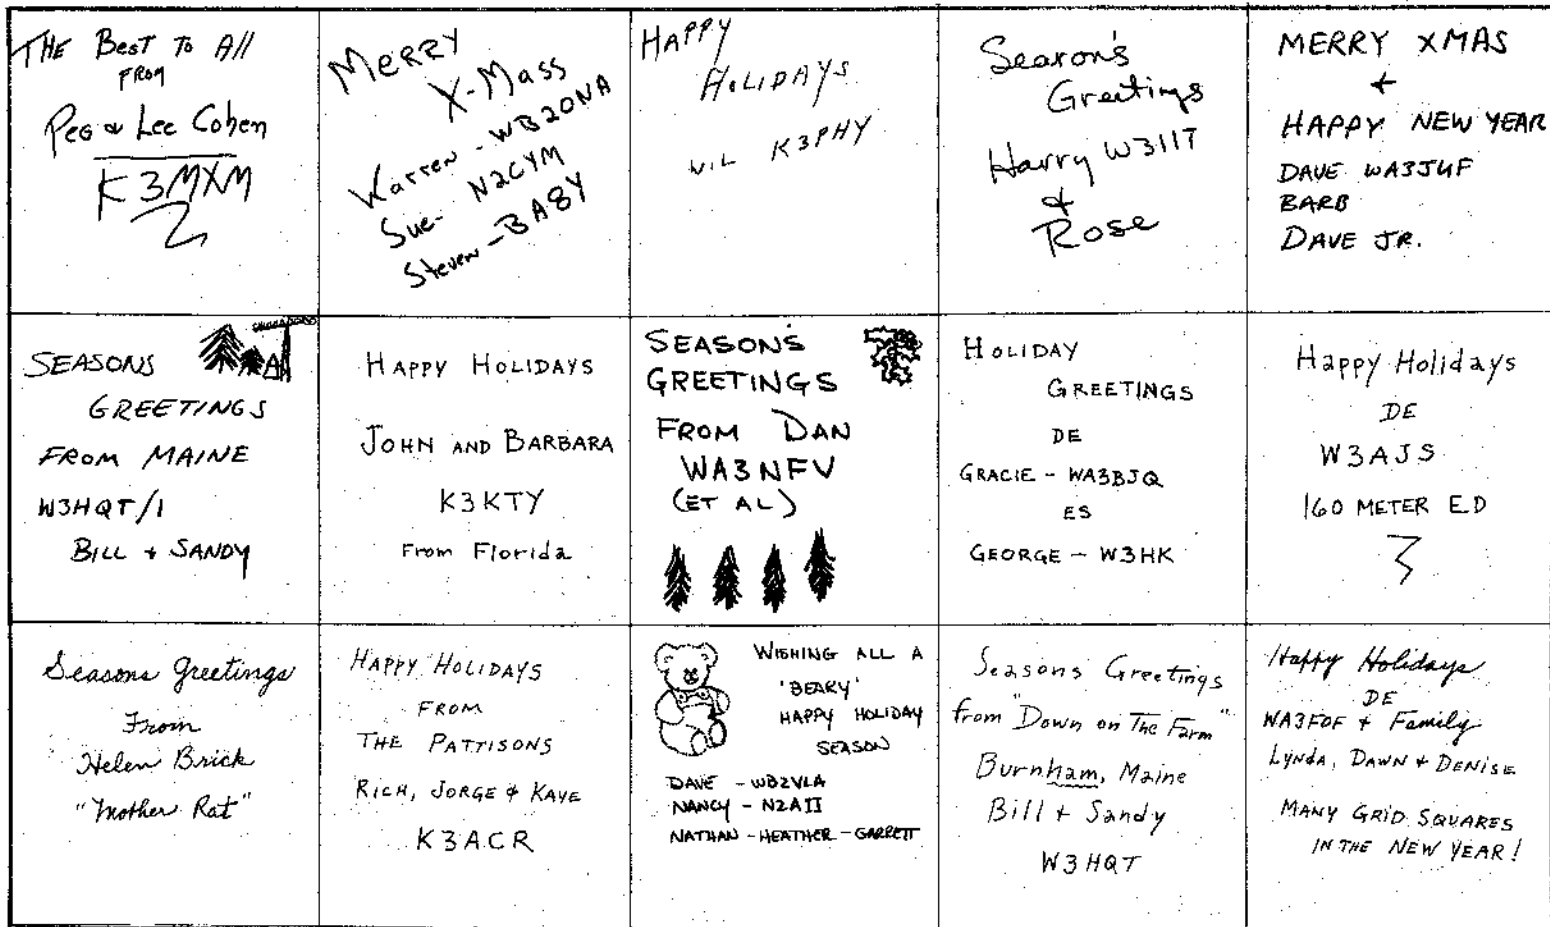 THE BEST TO All
FROM
PEG & Lee Cohen
K3MXM
MERRY
X-MASS
Karren - WB2ONA
Sue - N2CYM
Steven - BABY
HAPPY
HOLIDAYS
WIL K3PHY
Season's
Greetings
Harry W3IIT
&
Rose
MERRY XMAS
+
HAPPY NEW YEAR
DAVE WA3JUF
BARB
DAVE JR.
SEASONS
GREETINGS
FROM MAINE
W3HQT/1
BILL + SANDY
HAPPY HOLIDAYS
JOHN AND BARBARA
K3KTY
From Florida
SEASON'S
GREETINGS
FROM DAN
WA3NFV
(ET AL)
HOLIDAY
GREETINGS
DE
GRACIE - WA3BJQ
ES
GEORGE - W3HK
Happy Holidays
DE
W3AJS
160 METER ED
Seasons Greetings
From
Helen Brick
"Mother Rat"
HAPPY HOLIDAYS
FROM
THE PATTISONS
RICH, JORGE & KAYE
K3ACR
WISHING ALL A
'BEARY'
HAPPY HOLIDAY
SEASON
DAVE - WB2VLA
NANCY - N2AII
NATHAN - HEATHER - GARRETT
Seasons Greetings
from "Down on The Farm"
Burnham, Maine
Bill + Sandy
W3HQT
Happy Holidays
DE
WA3FOF + Family
LYNDA, DAWN & DENISE
MANY GRID SQUARES
IN THE NEW YEAR!